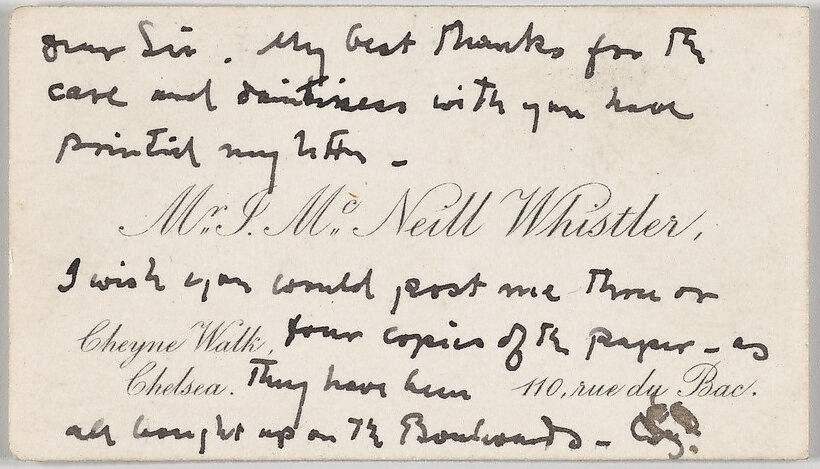 Dear Sir. My best thanks for th
care and daintiness with you have
printed my letter –
Mr. J. Mc. Neill Whistler,
I wish you would post me three or
four copies of the paper – as
Cheyne Walk,
Chelsea.
They have been
110, rue du Bac.
all bought up on the Boulevards –